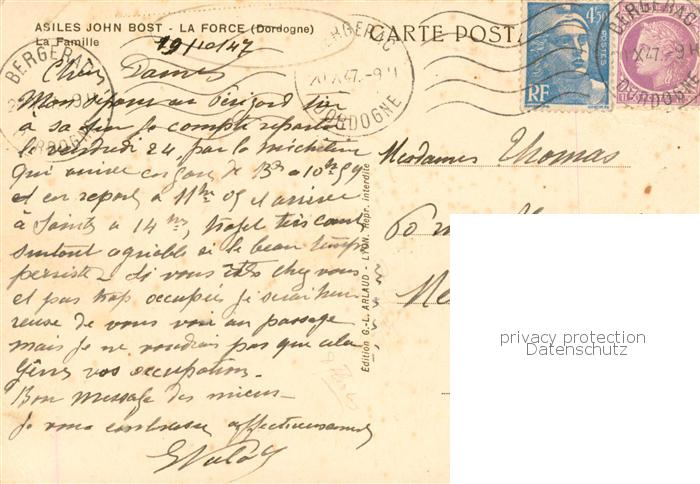 ASILES JOHN BOST - LA FORCE (Dordogne)
La Famille
19/10/47
CARTE POSTA
BERGERAC
DORDOGNE
BERGERAC
X47.-9
DORDOGNE
BERGERAC
X47.-9
DORDOGNE
4F50
POSTES
RF
Chères Dames
Mon séjour au Périgord tire
à sa fin je compte repartir
le vendredi 24 par la micheline
qui arrive en gare de à 10h
et en repart à 11h 05 et arrive
à à 14 h, trajet très court
surtout agréable si le beau temps
persiste. Si vous êtes chez vous
et pas trop occupées je serai heu
reuse de vous voir au passage
mais je ne voudrais pas que cela
gêne vos occupations.
Bon message des miens
je vous embrasse affectueusement
Mesdames Thomas
60
Edition G.-L. ARLAUD - LYON. Repr. interdite
privacy protection
Datenschutz